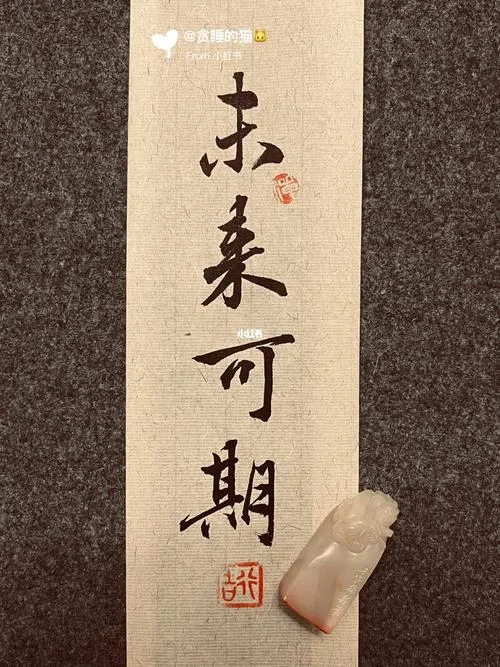 @贪睡的猫🐱
From 小红书
未来可期
小红书